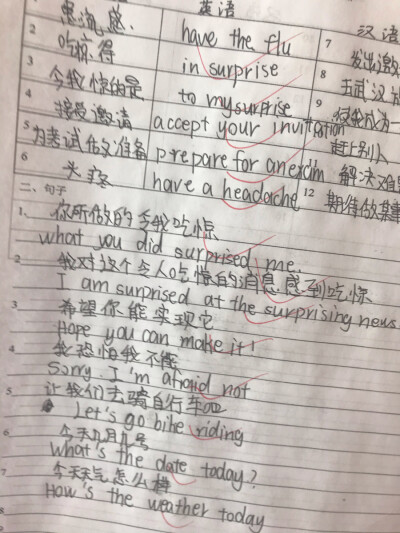 英语 汉语
患流感 have the flu 7 发出邀
2 吃惊得 in surprise 8 在武汉
3 令我惊的是 to my surprise 9
4 接受邀请 accept your invitation 赶上别人
5 为考试做准备 prepare for an exam 解决难
6 头疼 have a headache 12 期待做某事
二、句子
1、你所做的令我吃惊
what you did surprised me.
2 我对这个令人吃惊的消息感到吃惊
I am surprised at the surprising news
3 希望你能实现它
Hope you can make it!
4 我恐怕我不能
Sorry. I'm afraid not
5 让我们去骑自行车吧
Let's go bike riding
6 今天几月几号
What's the date today?
7 今天天气怎么样
How's the weather today
8